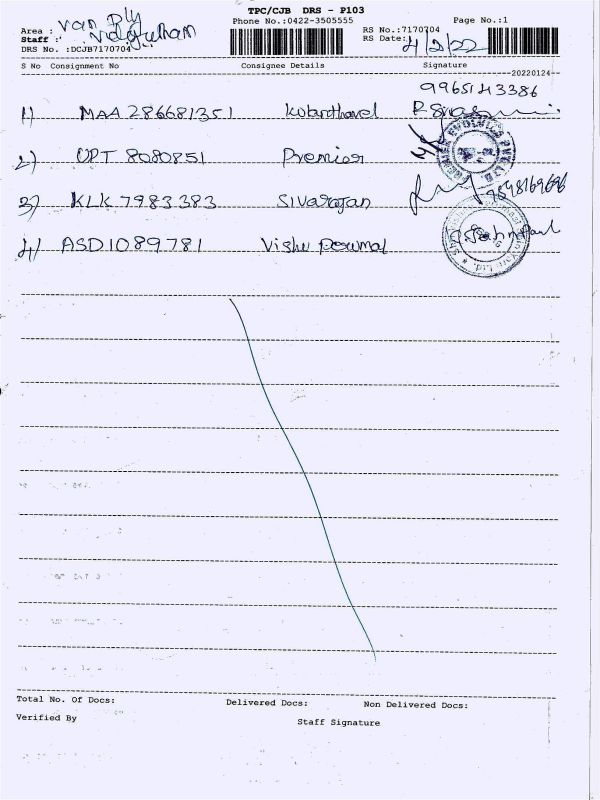 TPC/CJB DRS - P103
Area : Van Ply
Phone No.:0422-3505555
RS No.:7170704
Page No.:1
Staff :
RS Date: 4/2/22
DRS No. :DCJB7170704
S No Consignment No Consignee Details Signature
20220124
9965143386
1) MAA 286681351
2) UPT 8080851 Premier
3) KLK 7983383 Sivarajan 9598169696
4) ASD1089781 Vishu Perumal
Total No. Of Docs: Delivered Docs: Non Delivered Docs:
Verified By Staff Signature